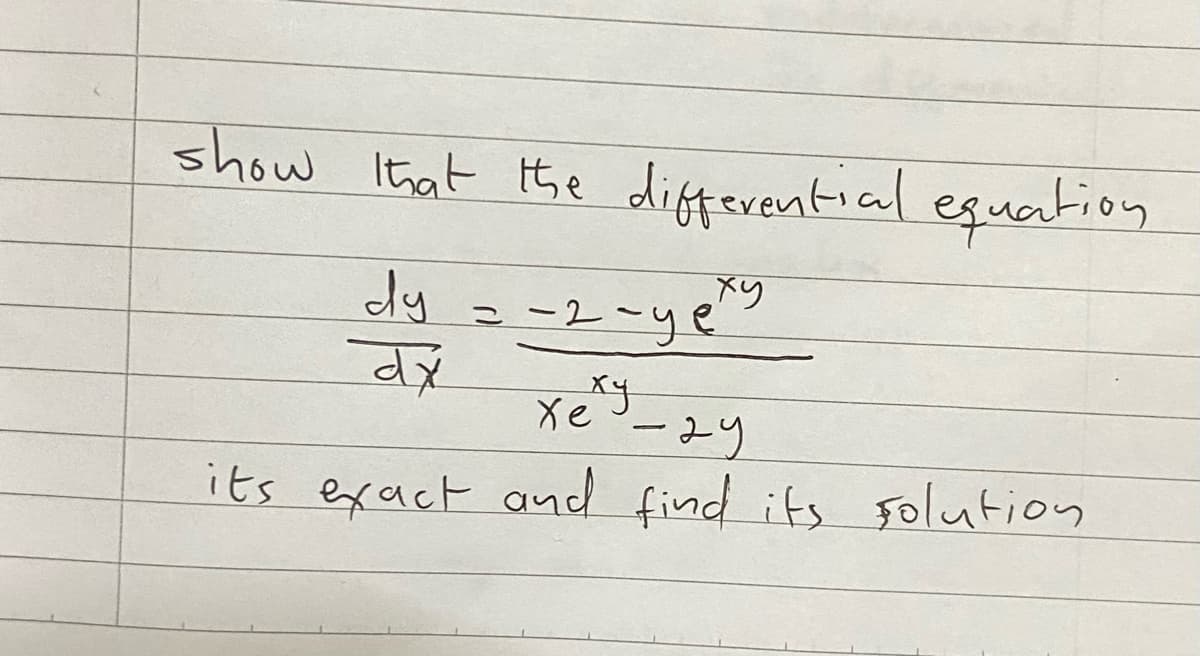 show that the differential equation
dy/dx = (-2-ye^xy)/(xe^xy-2y)
its exact and find its solution